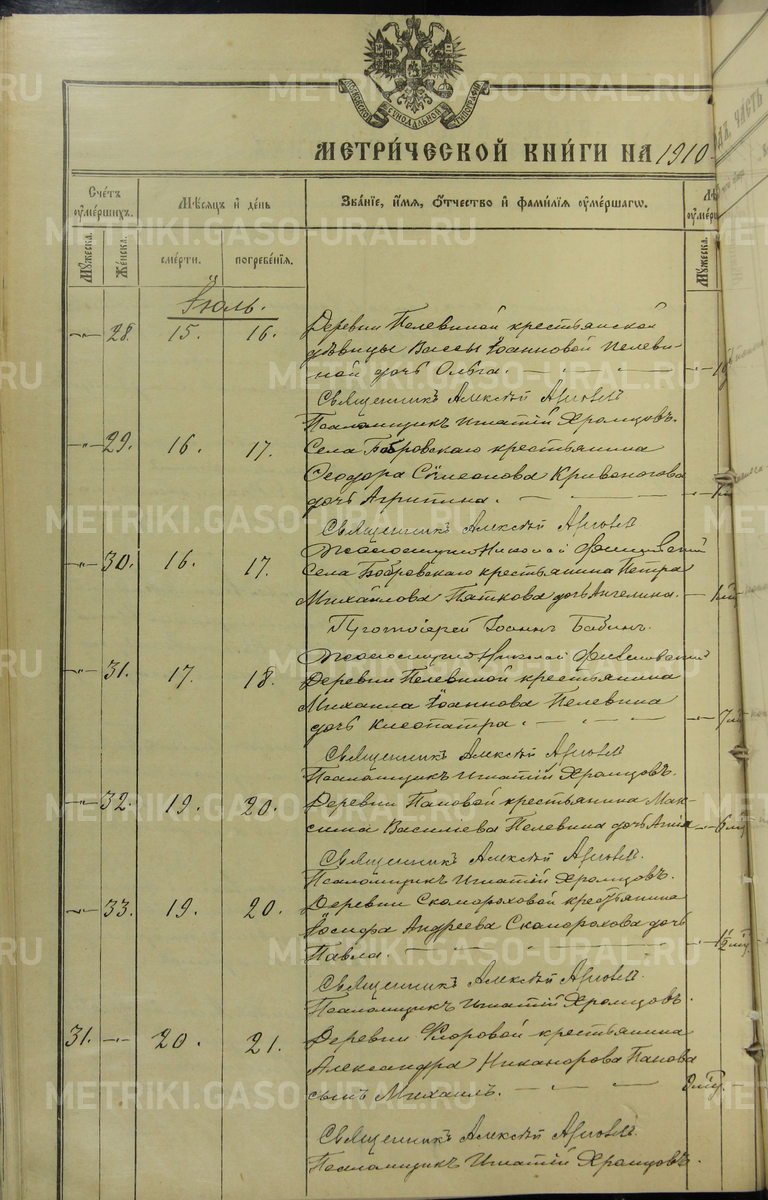 МОСКОВСКОЙ СѴНОДАЛЬНОЙ ТИПОГРАФІИ
МЕТРИ́ЧЕСКОЙ КНИ́ГИ НА 1910
Сче́тъ ᲂу҆ме́ршихъ.
Мѣ́сяцъ и҆ де́нь
Зва́нїе, и҆́мѧ, ѻ҆́тчество и҆ фами́лїѧ ᲂу҆ме́ршагѡ.
Му́жеска.
Же́нска.
сме́рти.
погребе́нїѧ.
Му́жеска.
Іюль.
-"- 28. 15. 16. Деревни Пелевиной крестьянской
дѣвицы Вассы Іоанновой Пелеви-
ной дочь Ольга.
Священникъ Алексѣй
Псаломщикъ Игнатій Храмцовъ.
-"- 29. 16. 17. Села Бобровскаго крестьянина
Ѳеодора Сѵмеонова Кривоногова
дочь Агрипина.
Священникъ Алексѣй
Николай
-"- 30. 16. 17. Села Бобровскаго крестьянина Петра
Михайлова Пяткова дочь Ангелина.
Протоіерей Іоаннъ Бабинъ.
Николай
-"- 31. 17. 18. Деревни Пелевиной крестьянина
Михаила Іоаннова Пелевина
дочь Клеопатра. 7
Священникъ Алексѣй
Псаломщикъ Игнатій Храмцовъ.
-"- 32. 19. 20. Деревни Пановой крестьянина Мак-
сима Василіева Пелевина дочь 6
Священникъ Алексѣй
Псаломщикъ Игнатій Храмцовъ.
-"- 33. 19. 20. Деревни Скомороховой крестьянина
Іосифа Андреева Скоморохова дочь
Павла. 1½
Священникъ Алексѣй
Псаломщикъ Игнатій Храмцовъ.
31. -"- 20. 21. Деревни Флоровой крестьянина
Александра Никанорова Панова
сынъ Михаилъ.
Священникъ Алексѣй
Псаломщикъ Игнатій Храмцовъ.
METRIKI.GASO-URAL.RU